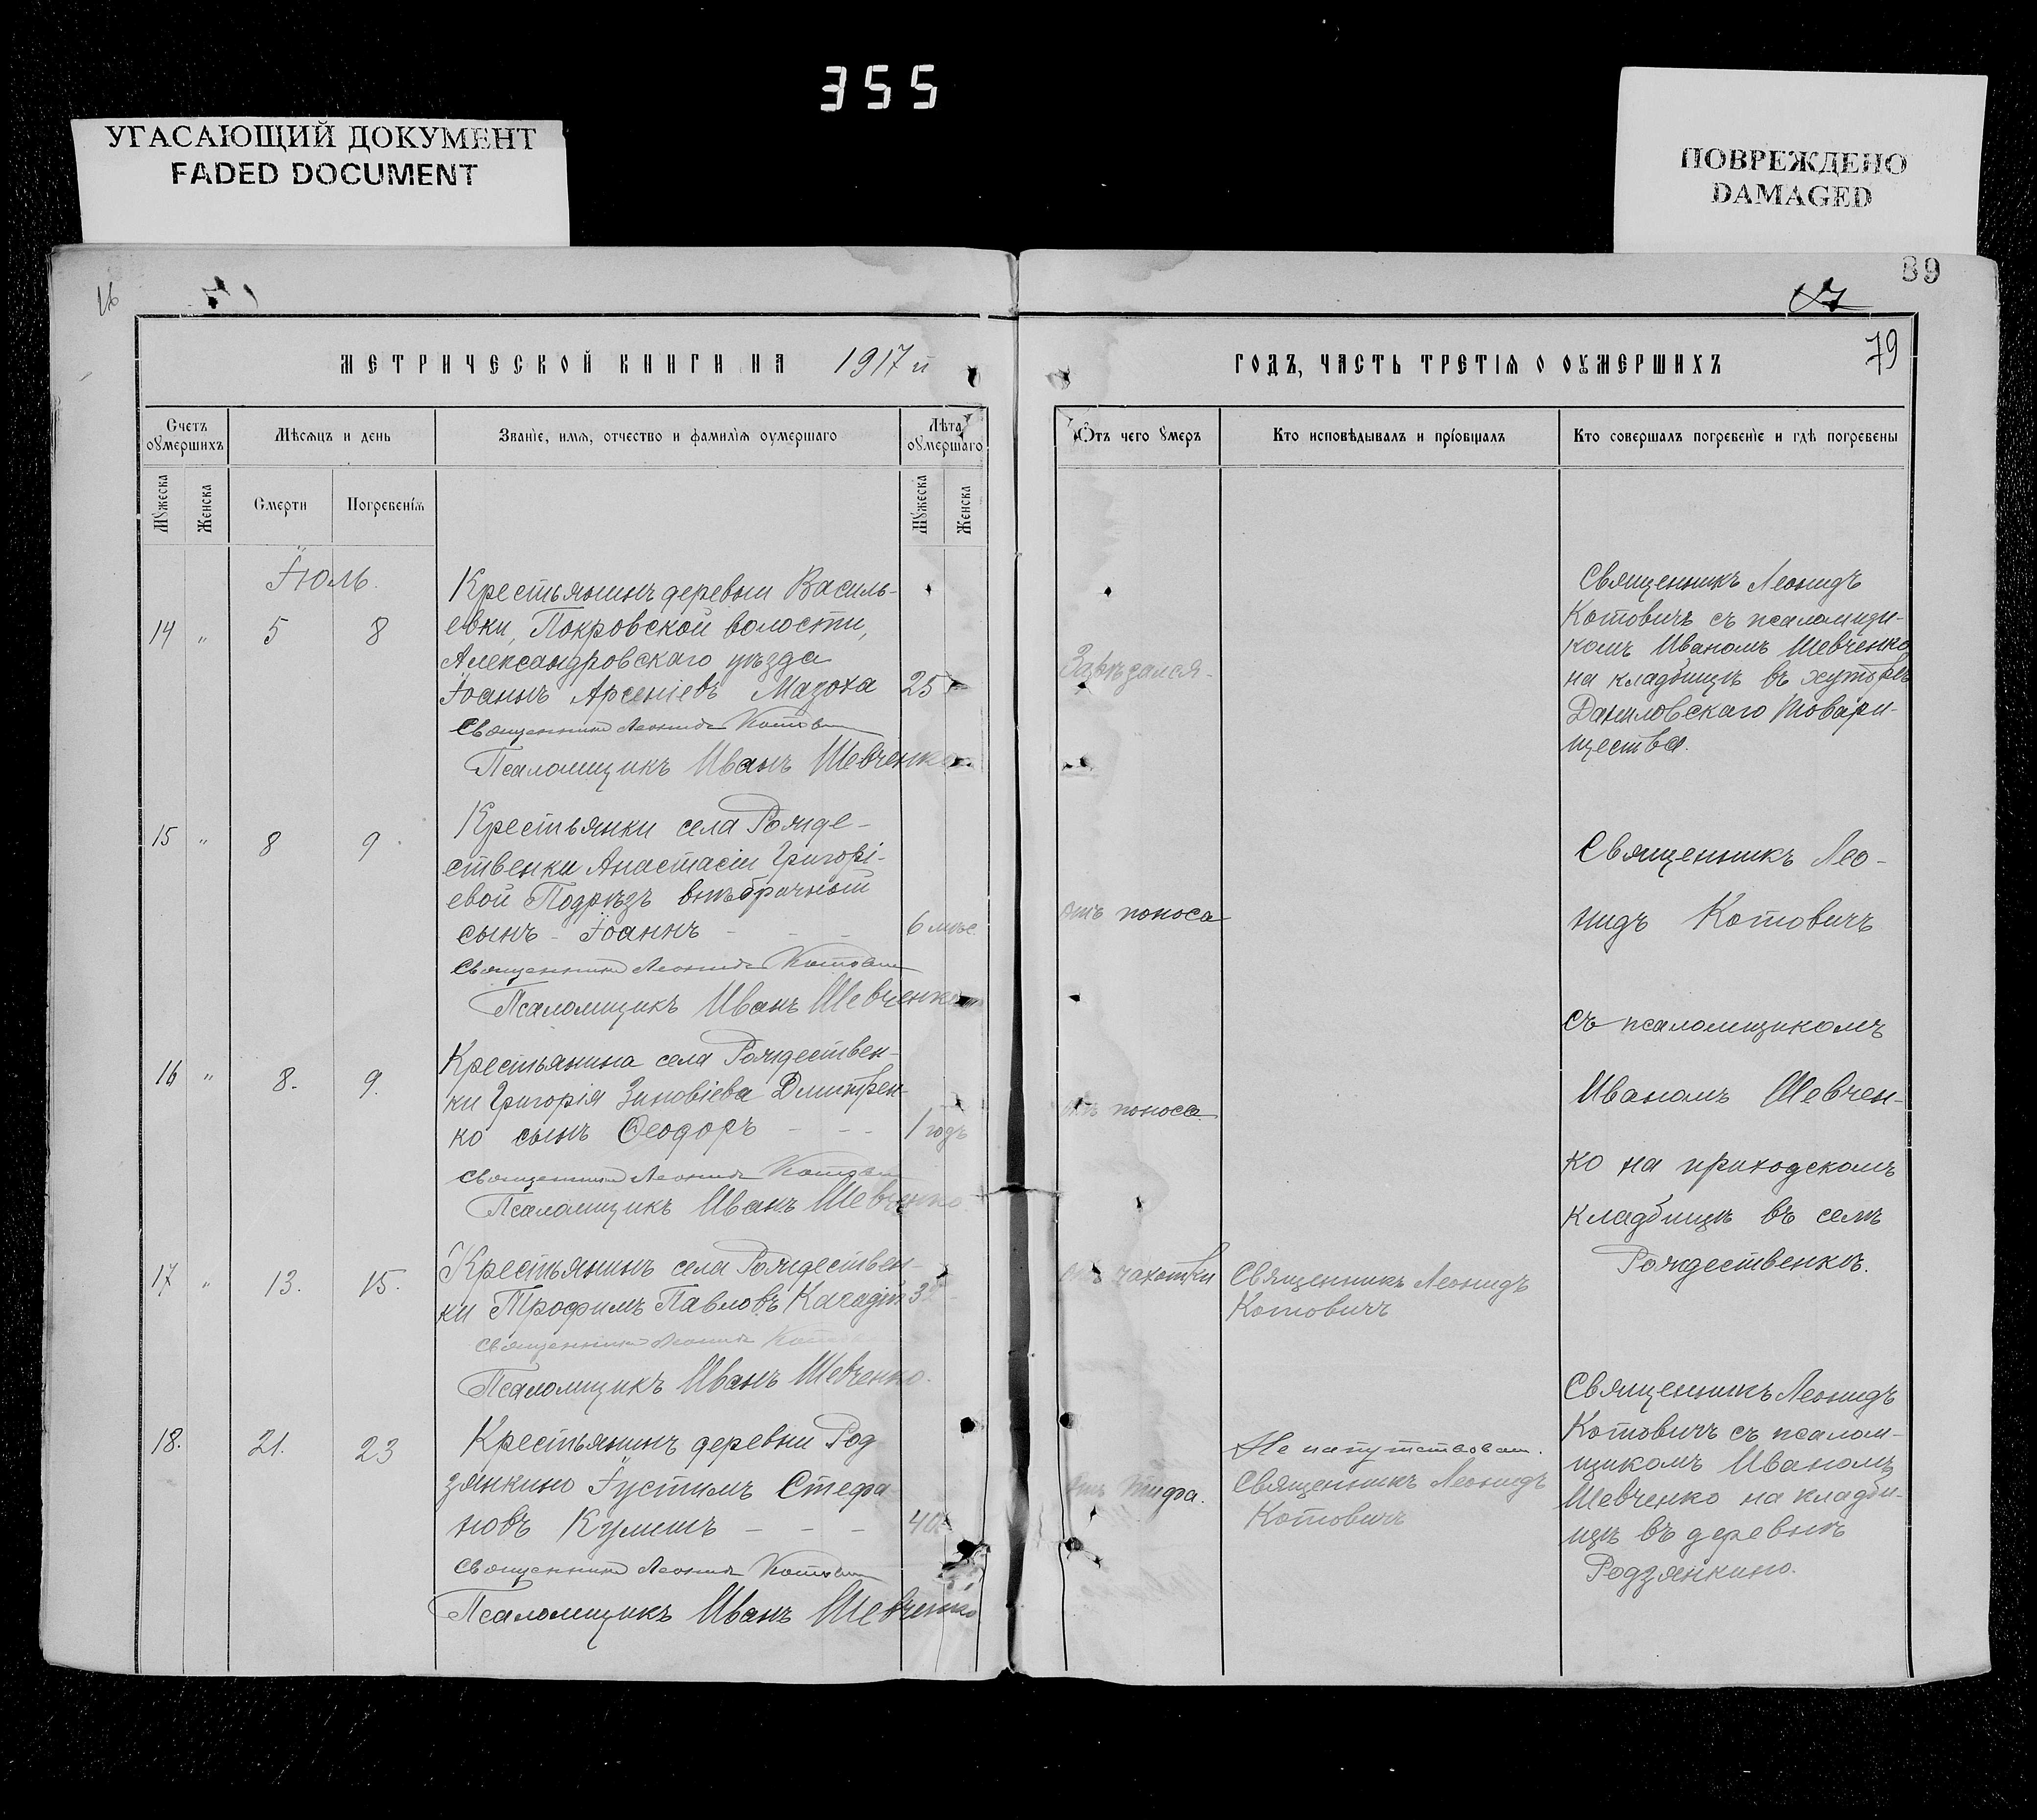 355
УГАСАЮЩИЙ ДОКУМЕНТ
FADED DOCUMENT
ПОВРЕЖДЕНО
DAMAGED
16
89
79
МЕТРИЧЕСКОЙ КНИГИ НА 1917 й
ГОДЪ, ЧАСТЬ ТРЕТІѦ О ОУМЕРШИХЪ
Счетъ оумершихъ
Мѣсяцъ и день
Званіе, имя, отчество и фамилія оумершаго
Лѣта оумершаго
Мужеска
Женска
Смерти
Погребенія
Мужеска
Женска
Отъ чего умеръ
Кто исповѣдывалъ и пріобщалъ
Кто совершалъ погребеніе и гдѣ погребены
Іюль.
14 " 5 8
Крестьянинъ деревни Василь-
евки, Покровской волости,
Александровскаго уѣзда
Іоаннъ Арсеніевъ Мазоха 25
Священникъ Леонидъ Котович
Псаломщикъ Иванъ Шевченко
Зарѣзался.
Священникъ Леонидъ
Котовичъ съ псаломщи-
комъ Иваномъ Шевченко
на кладбищѣ въ хуторѣ
Даниловскаго Товари-
щества.
15 " 8 9
Крестьянки села Рожде-
ственки Анастасіи Григорі-
евой Подрѣзъ внѣбрачный
сынъ - Іоаннъ - - - 6 мѣс.
Священникъ Леонидъ Котович
Псаломщикъ Иванъ Шевченко
Отъ поноса
16 " 8. 9.
Крестьянина села Рождествен-
ки Григорія Зиновіева Дмитрен-
ко сынъ Ѳеодоръ - - - 1 годъ
Священникъ Леонидъ Котович
Псаломщикъ Иванъ Шевченко
Отъ поноса
17 " 13. 15.
Крестьянинъ села Рождествен-
ки Трофимъ Павловъ
Священникъ Леонидъ
Псаломщикъ Иванъ Шевченко.
Отъ чахотки
Священникъ Леонидъ
Котовичъ
Священникъ Лео-
нидъ Котовичъ
съ псаломщикомъ
Иваномъ Шевчен-
ко на приходскомъ
кладбищѣ въ селѣ
Рождественкѣ.
18. 21. 23
Крестьянинъ деревни Род
зянкино Іустинъ Стефа
новъ Кулишъ - - - 40
Священникъ Леонидъ Котович
Псаломщикъ Иванъ Шевченко
Отъ тифа.
Не напутствован.
Священникъ Леонидъ
Котовичъ
Священникъ Леонидъ
Котовичъ съ псалом-
щикомъ Иваномъ
Шевченко на кладби-
щѣ въ деревнѣ
Родзянкино.